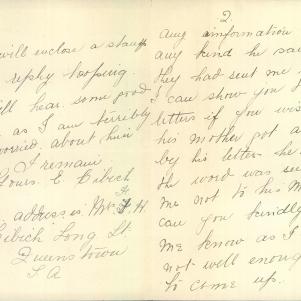 will enclose a stamp
reply hopping.
will hear. some good
as I am terribly
worried. about him
I remain
Yours. E. Eibich
address is Mrs F. H.
Eibich Long St
Queenstown
S A
2
any information
any kind he said
they had sent me
I can show you the
letters if you wish
his mother got a
by his letters he
the word was sent
me not to his M
can you kindly
me know as I
not well enough
to come up.